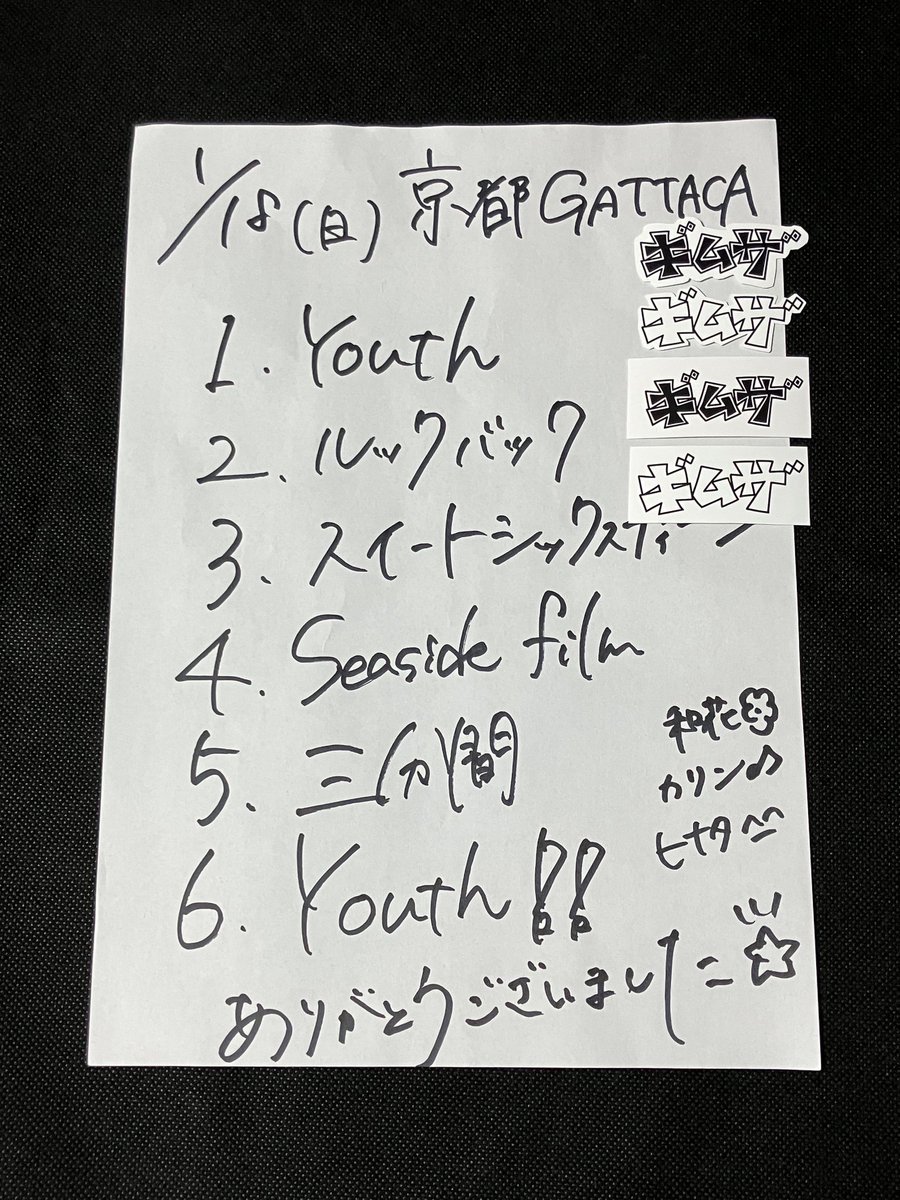 1/18(日) 京都 GATTACA
ギムザ
ギムザ
ギムザ
ギムザ
1. Youth
2. ルックバック
3. スイートシックスティーン
4. Seaside film
5. 三分間
6. Youth!!
和花
カリン♪
ヒナタ^^
ありがとうございました☆